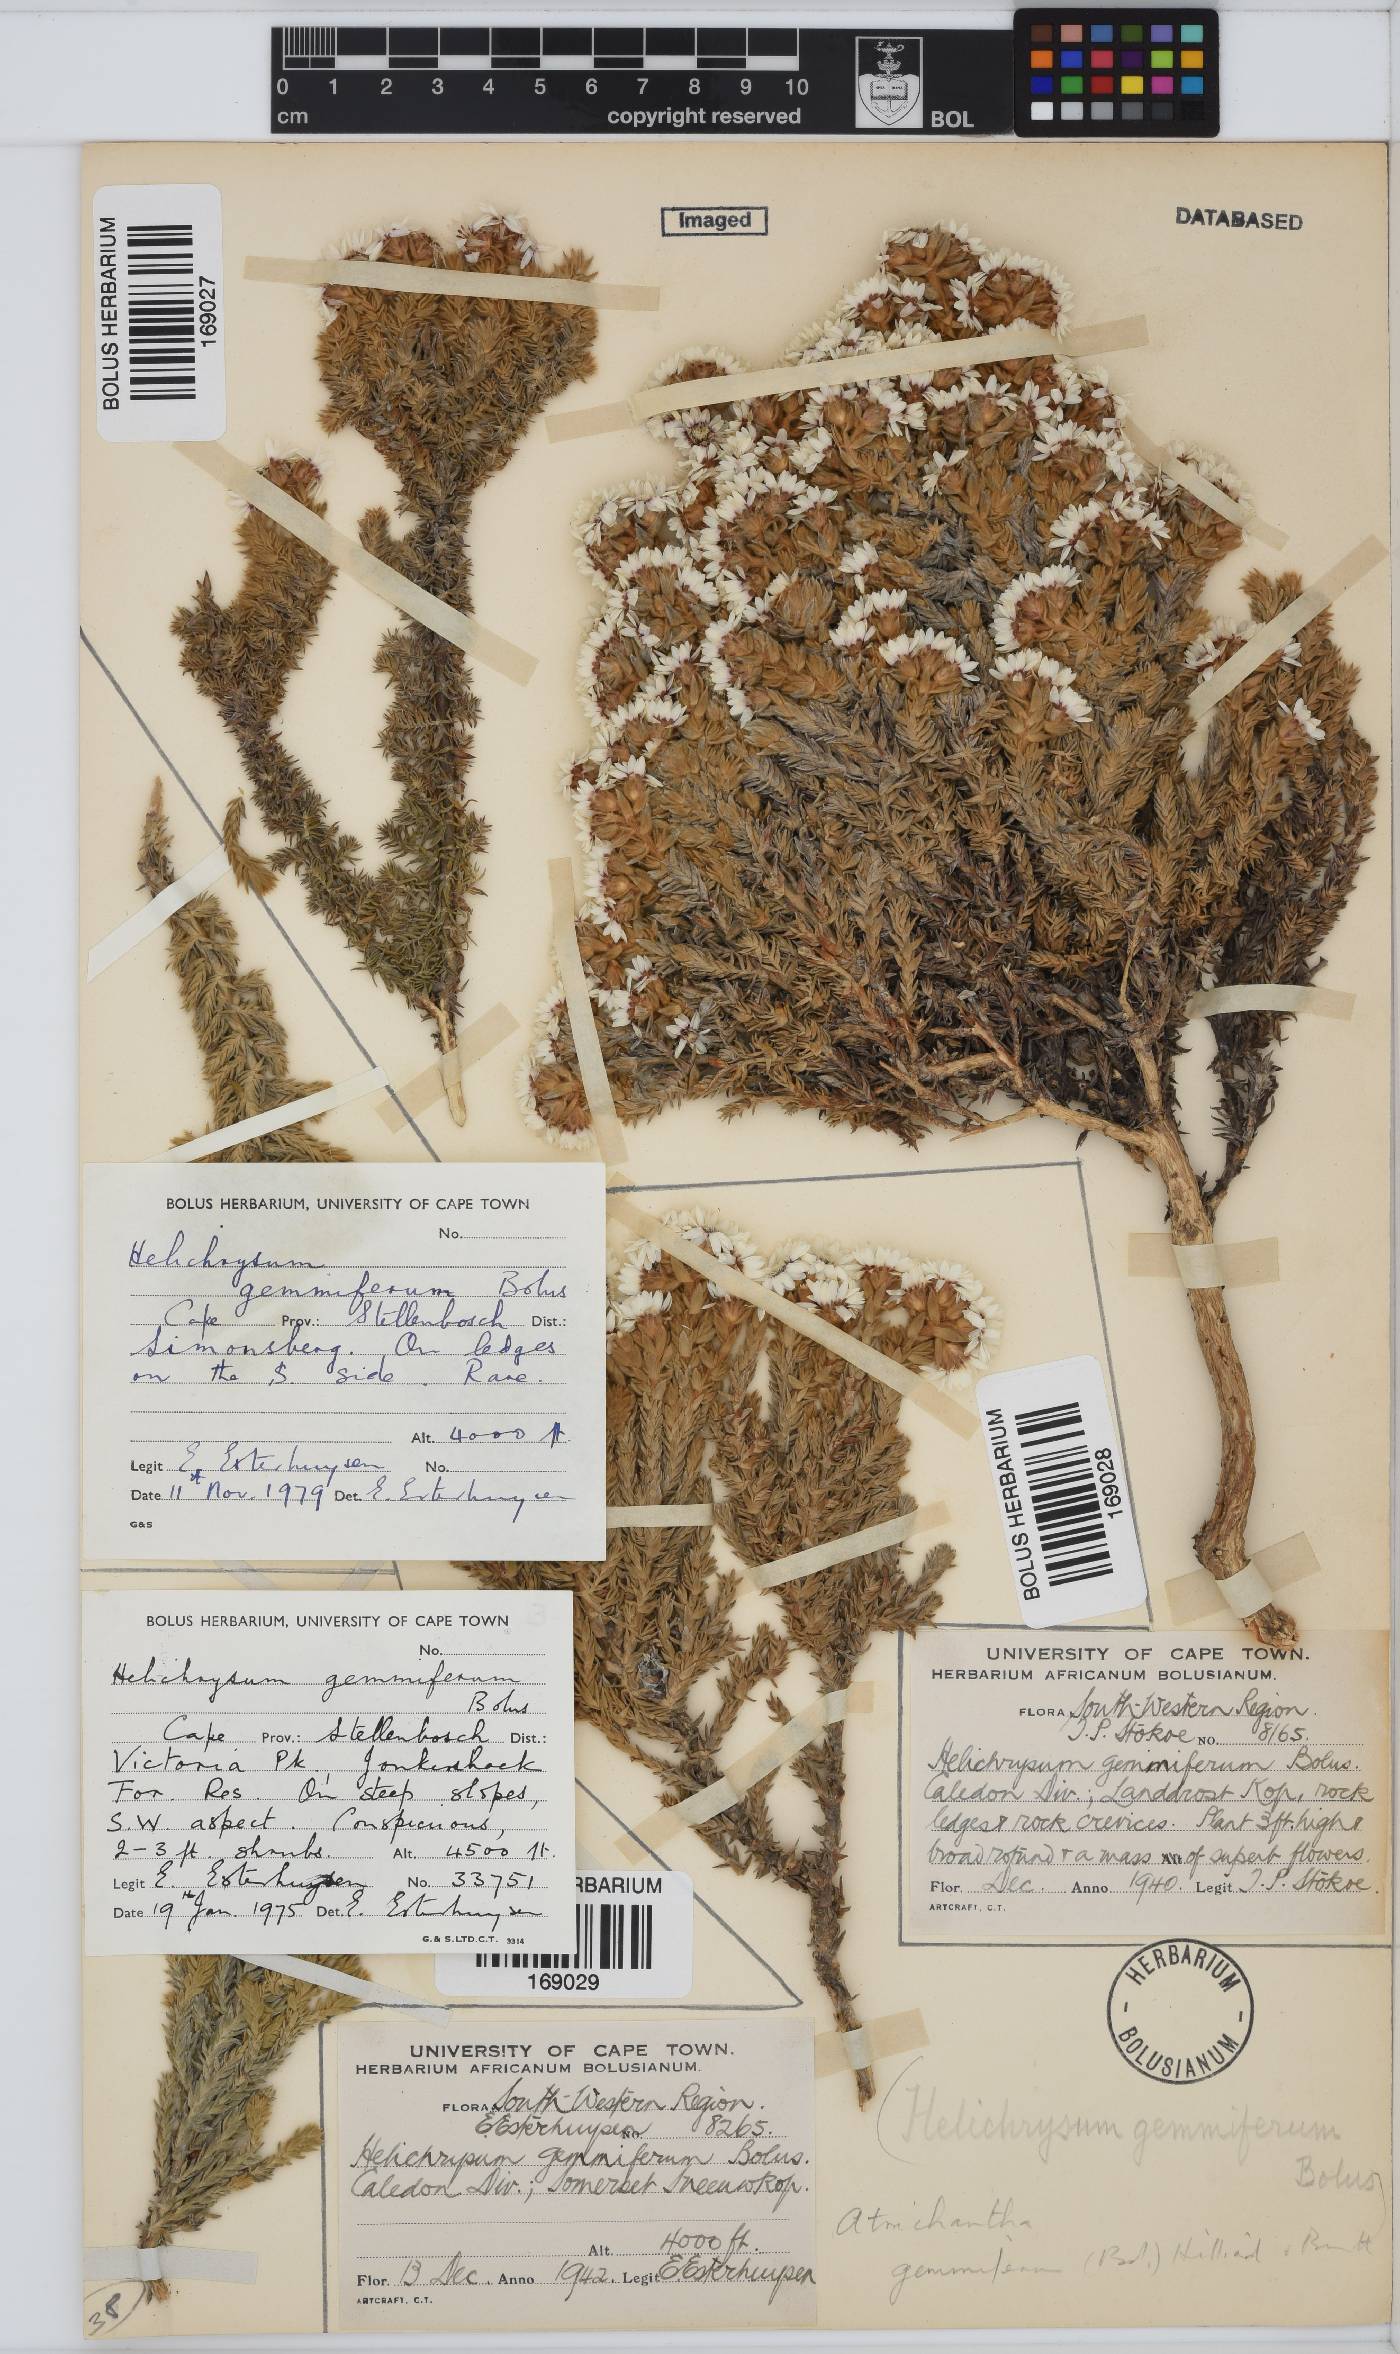 0 1 2 3 4 5 6 7 8 9 10
cm
copyright reserved
BOL
BOLUS HERBARIUM
169027
Imaged
DATABASED
BOLUS HERBARIUM, UNIVERSITY OF CAPE TOWN
No.
Helichrysum
gemmiferum Bolus
Cape Prov.: Stellenbosch Dist.:
Simonsberg. On ledges
on the S. side. Rare.
Alt. 4000 ft.
Legit E. Esterhuysen No.
Date 11th Nov. 1979 Det. E. Esterhuysen
G&S
BOLUS HERBARIUM, UNIVERSITY OF CAPE TOWN
No.
Helichrysum gemmiferum
Bolus
Cape Prov.: Stellenbosch Dist.:
Victoria Pk., Jonkershoek
For. Res. On steep slopes,
S.W aspect. Conspicuous,
2-3 ft. shrubs. Alt. 4500 ft.
Legit E. Esterhuysen No. 33751
Date 19th Jan. 1975 Det. E. Esterhuysen
G. & S. LTD. C.T. 3314
HERBARIUM
169029
UNIVERSITY OF CAPE TOWN.
HERBARIUM AFRICANUM BOLUSIANUM.
FLORA South-Western Region.
E Esterhuysen No. 8265.
Helichrysum gemmiferum Bolus.
Caledon Div.; Somerset Sneeuwkop.
Alt. 4000 ft.
Flor. 13 Dec. Anno 1942. Legit E Esterhuysen
ARTCRAFT, C.T.
BOLUS HERBARIUM
169028
UNIVERSITY OF CAPE TOWN.
HERBARIUM AFRICANUM BOLUSIANUM.
FLORA South-Western Region.
T.P. Stokoe No. 8165.
Helichrysum gemmiferum Bolus.
Caledon Div., Landdrost Kop, rock
ledges & rock crevices. Plant 3 ft. high &
broad, rotund & a mass Alt of superb flowers.
Flor. Dec. Anno 1940. Legit T.P. Stokoe.
ARTCRAFT, C.T.
HERBARIUM
BOLUSIANUM
(Helichrysum gemmiferum
Bolus)
Atrichantha
gemmifera (Bol.) Hilliard & Burtt
38